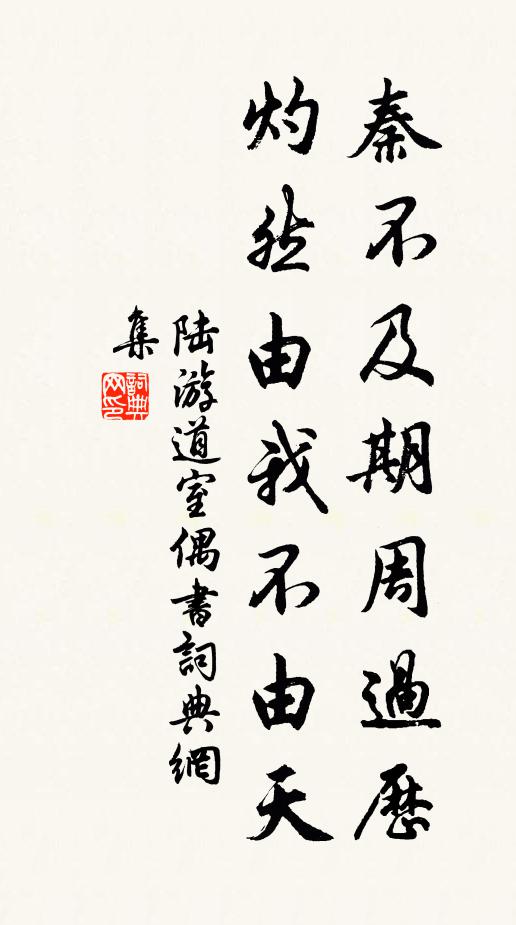 秦不及期周過歷
灼然由我不由天
陆游道室偶書詞典網
集
詞典
网印